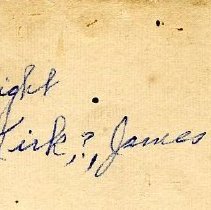 ight
Kirk, ?, James